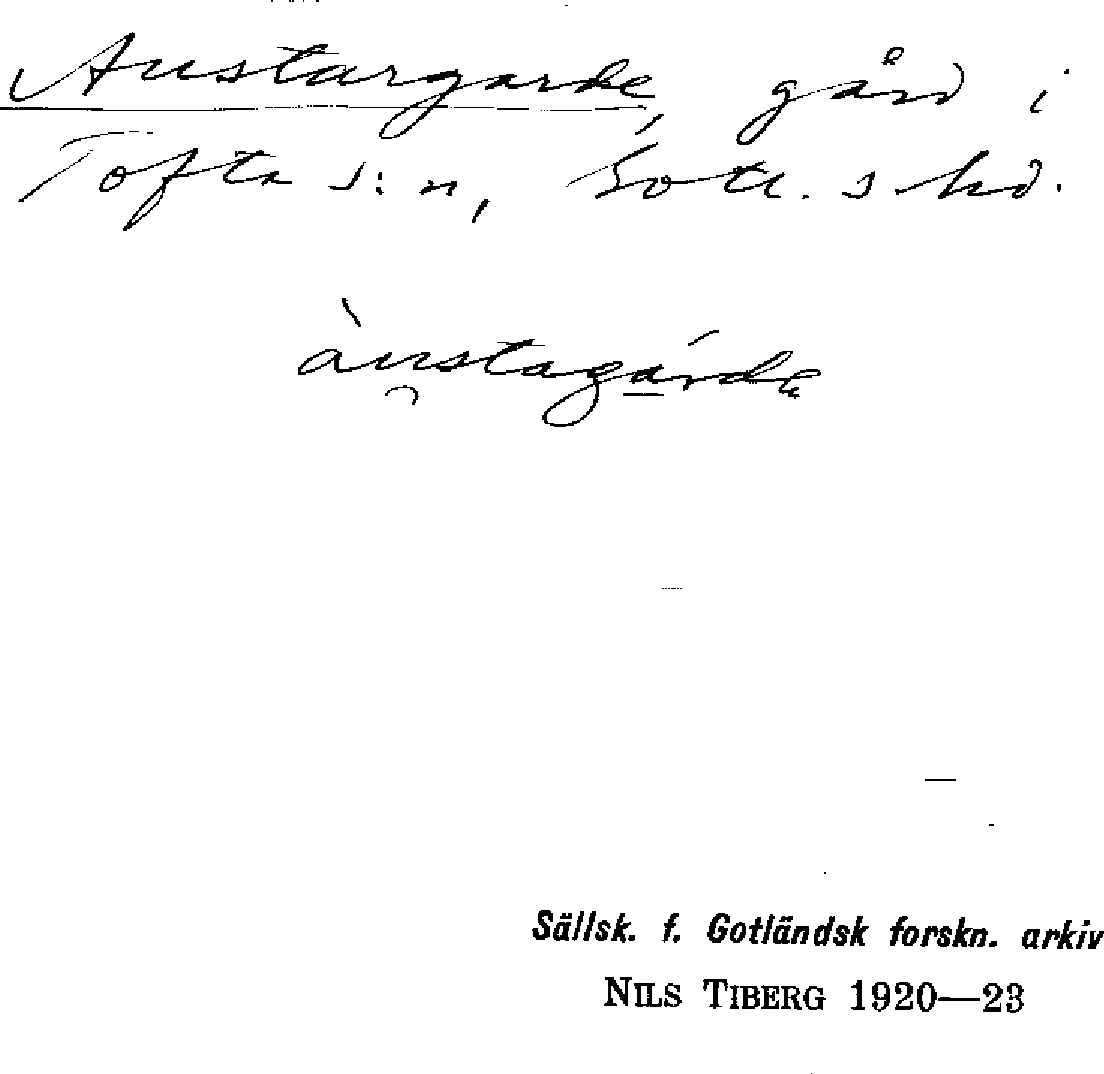 Austargarde, gård i
Tofta s:n, Gotl. s hd.
àu̯stagá̱rde
Sällsk. f. Gotländsk forskn. arkiv
NILS TIBERG 1920—23